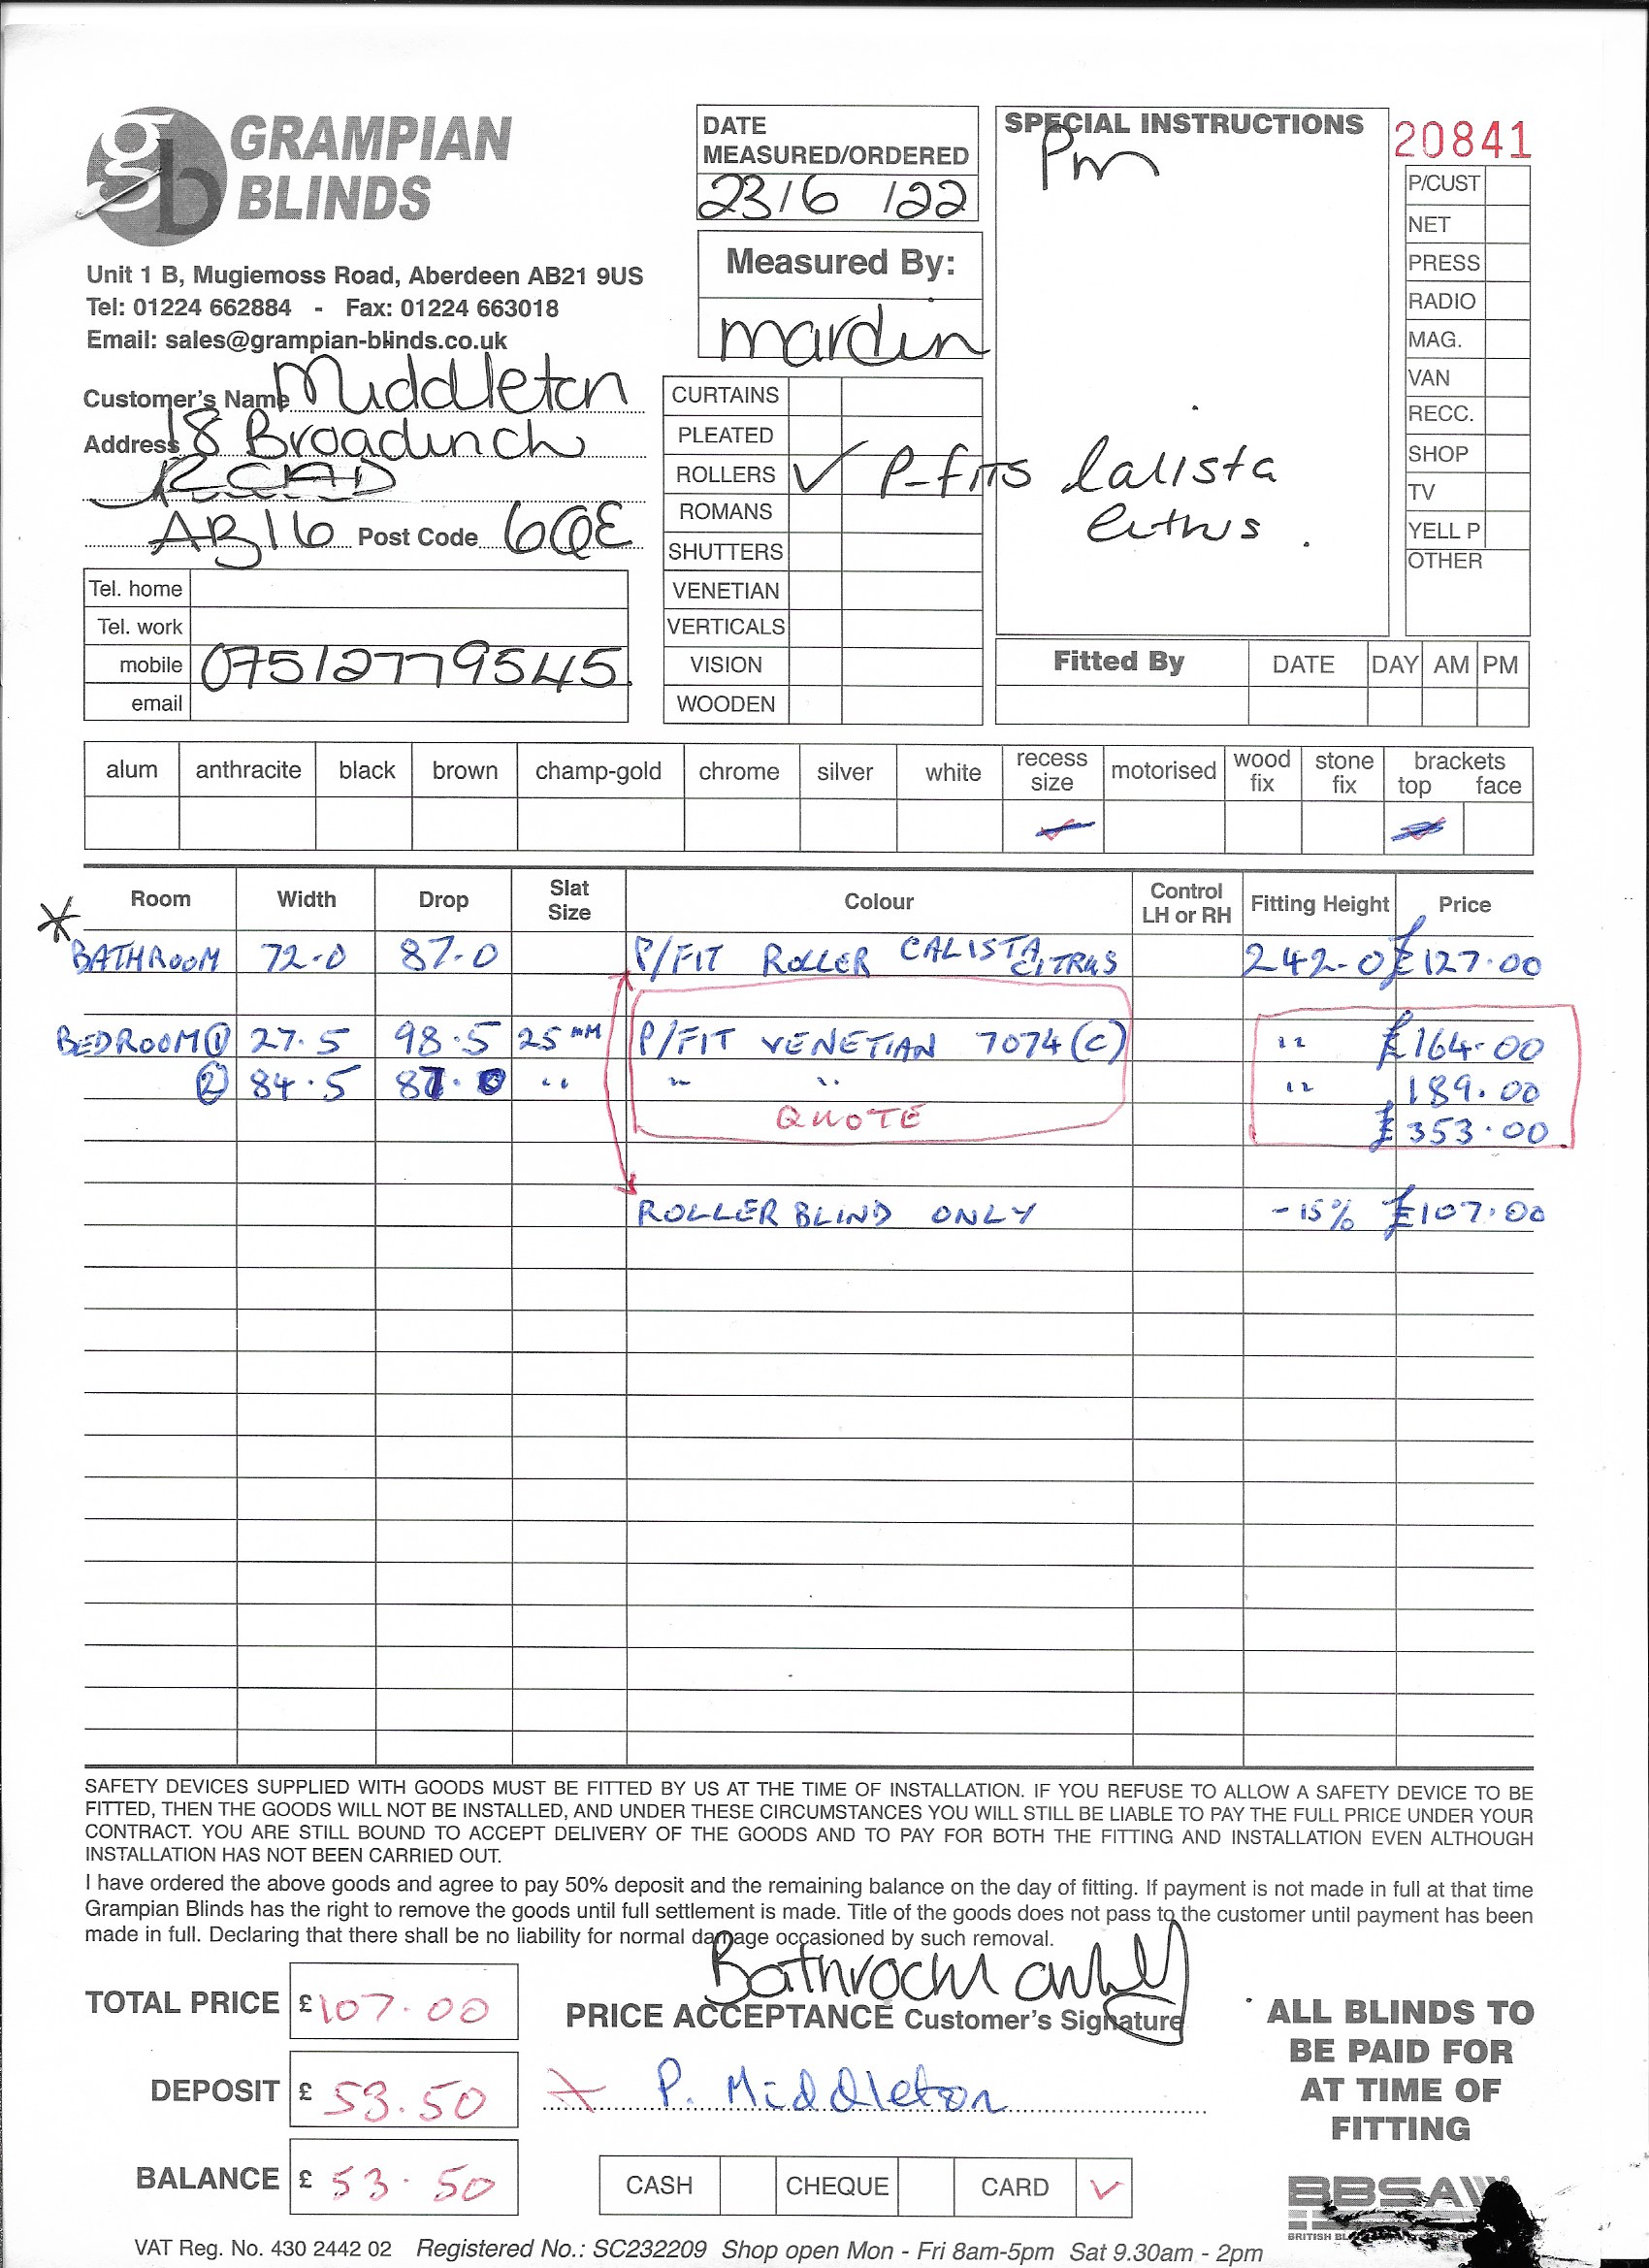 GRAMPIAN
BLINDS
Unit 1 B, Mugiemoss Road, Aberdeen AB21 9US
Tel: 01224 662884 - Fax: 01224 663018
Email: sales@grampian-blinds.co.uk
Customer's Name Middleton
Address 18 Broadinch
ROAD
AB16 Post Code 6QE
Tel. home
Tel. work
mobile 07512779545
email
DATE
MEASURED/ORDERED
23/6/22
Measured By:
martin
CURTAINS
PLEATED
ROLLERS ✓ P-fits Calista
citrus.
ROMANS
SHUTTERS
VENETIAN
VERTICALS
VISION
WOODEN
SPECIAL INSTRUCTIONS
Pm
20841
P/CUST
NET
PRESS
RADIO
MAG.
VAN
RECC.
SHOP
TV
YELL P
OTHER
Fitted By DATE DAY AM PM
alum anthracite black brown champ-gold chrome silver white recess size motorised wood fix stone fix brackets top face
Room Width Drop Slat Size Colour Control LH or RH Fitting Height Price
* BATHROOM 72.0 87.0 P/FIT ROLLER CALISTA CITRUS 242-0 £127.00
BEDROOM ① 27.5 98.5 25mm P/FIT VENETIAN 7074 (C) " £164.00
② 84.5 87.0 " " " " 189.00
QUOTE £353.00
ROLLER BLIND ONLY -15% £107.00
SAFETY DEVICES SUPPLIED WITH GOODS MUST BE FITTED BY US AT THE TIME OF INSTALLATION. IF YOU REFUSE TO ALLOW A SAFETY DEVICE TO BE
FITTED, THEN THE GOODS WILL NOT BE INSTALLED, AND UNDER THESE CIRCUMSTANCES YOU WILL STILL BE LIABLE TO PAY THE FULL PRICE UNDER YOUR
CONTRACT. YOU ARE STILL BOUND TO ACCEPT DELIVERY OF THE GOODS AND TO PAY FOR BOTH THE FITTING AND INSTALLATION EVEN ALTHOUGH
INSTALLATION HAS NOT BEEN CARRIED OUT.
I have ordered the above goods and agree to pay 50% deposit and the remaining balance on the day of fitting. If payment is not made in full at that time
Grampian Blinds has the right to remove the goods until full settlement is made. Title of the goods does not pass to the customer until payment has been
made in full. Declaring that there shall be no liability for normal damage occasioned by such removal.
Bathroom only
TOTAL PRICE £107.00
PRICE ACCEPTANCE Customer's Signature
DEPOSIT £ 53.50
P. Middleton
BALANCE £ 53.50
CASH CHEQUE CARD ✓
ALL BLINDS TO
BE PAID FOR
AT TIME OF
FITTING
BBSA
BRITISH
VAT Reg. No. 430 2442 02 Registered No.: SC232209 Shop open Mon - Fri 8am-5pm Sat 9.30am - 2pm